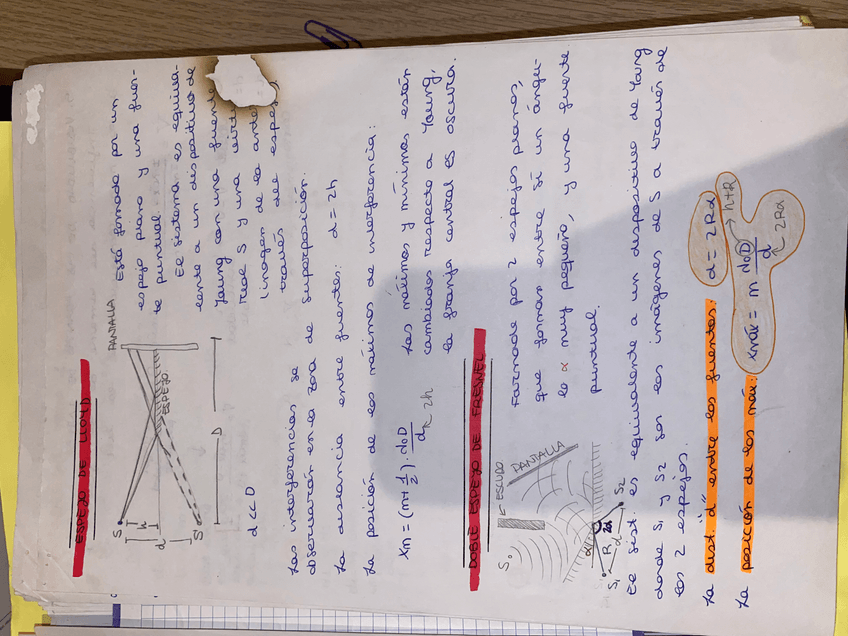 ESPEJO DE LLOYD
PANTALLA
S
h
d
ESPEJO
S'
D
d << D
Está formado por un
espejo plano y una fuen-
te puntual.
El sistema es equiva-
lente a un dispositivo de
Young con una fuente
real S y una
(imagen de la
través del espejo).
Las interferencias se
observarán en la zona de superposición.
La distancia entre fuentes: d = 2h
La posición de los máximos de interferencia:
xm = (m + 1/2) · λ0D/d
2h
Los máximos y mínimos están
cambiados respecto a Young,
la franja central es oscura.
DOBLE ESPEJO DE FRESNEL
S0
ESCUDO
PANTALLA
α
R
2α
S1
d
S2
Formado por 2 espejos planos,
que forman entre sí un ángu-
lo α muy pequeño, y una fuente
puntual.
El sist. es equivalente a un dispositivo de Young
donde S1 y S2 son las imágenes de S a través de
los 2 espejos.
La dist. "d" entre las fuentes: d = 2Rα
La posición de los máx: xmáx = m λ0D/d
2Rα